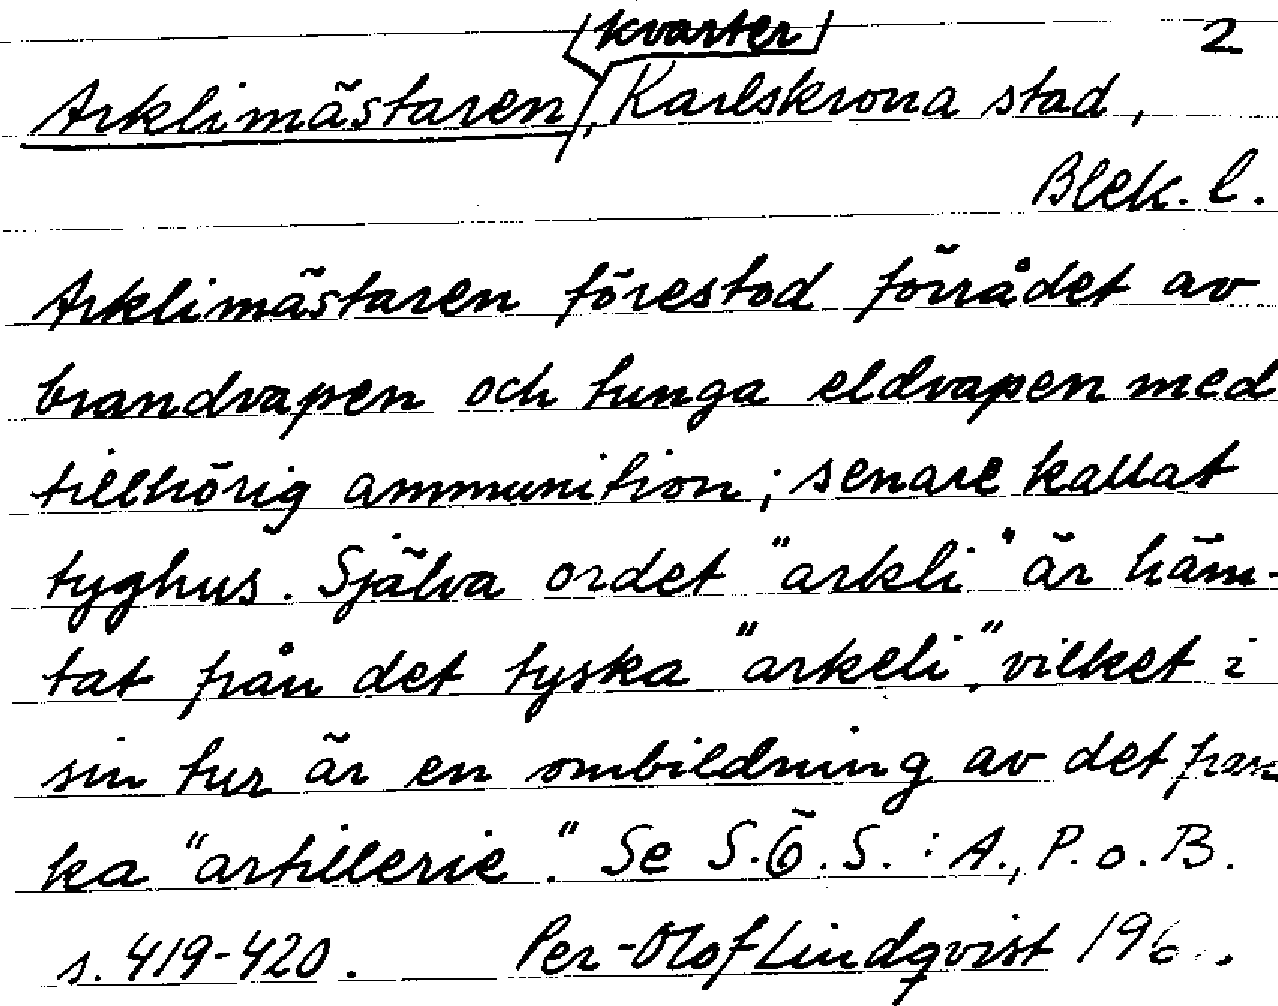 kvarter 2
Arklimästaren, Karlskrona stad,
Blek. l.
Arklimästaren förestod förrådet av
brandvapen och tunga eldvapen med
tillhörig ammunition; senare kallat
tyghus. Själva ordet "arkli" är häm-
tat från det tyska "arkeli", vilket i
sin tur är en ombildning av det frans
ka "artillerie". Se S.Ö.S.: A., P. o. B.
s. 419-420. Per-Olof Lindqvist